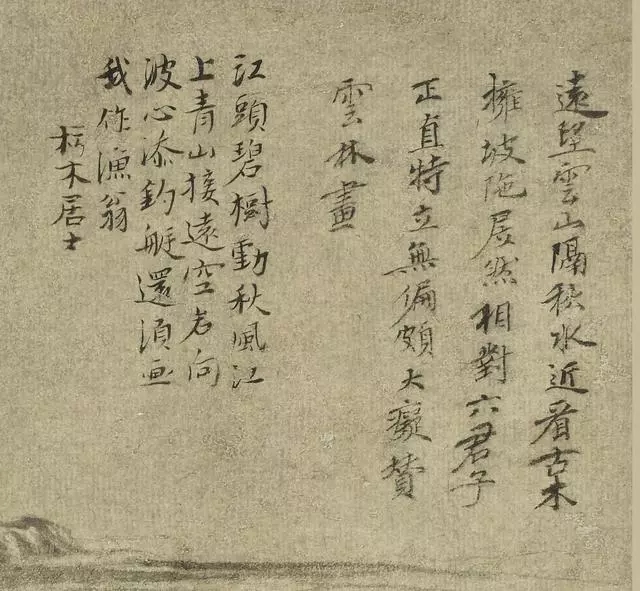 遠望雲山隔秋水近看古木
擁坡陁居然相對六君子
正直特立無偏頗大癡贊
雲林畫
江頭碧樹動秋風江
上青山接遠空若向
波心添釣艇還須畫
我作漁翁
朽木居士